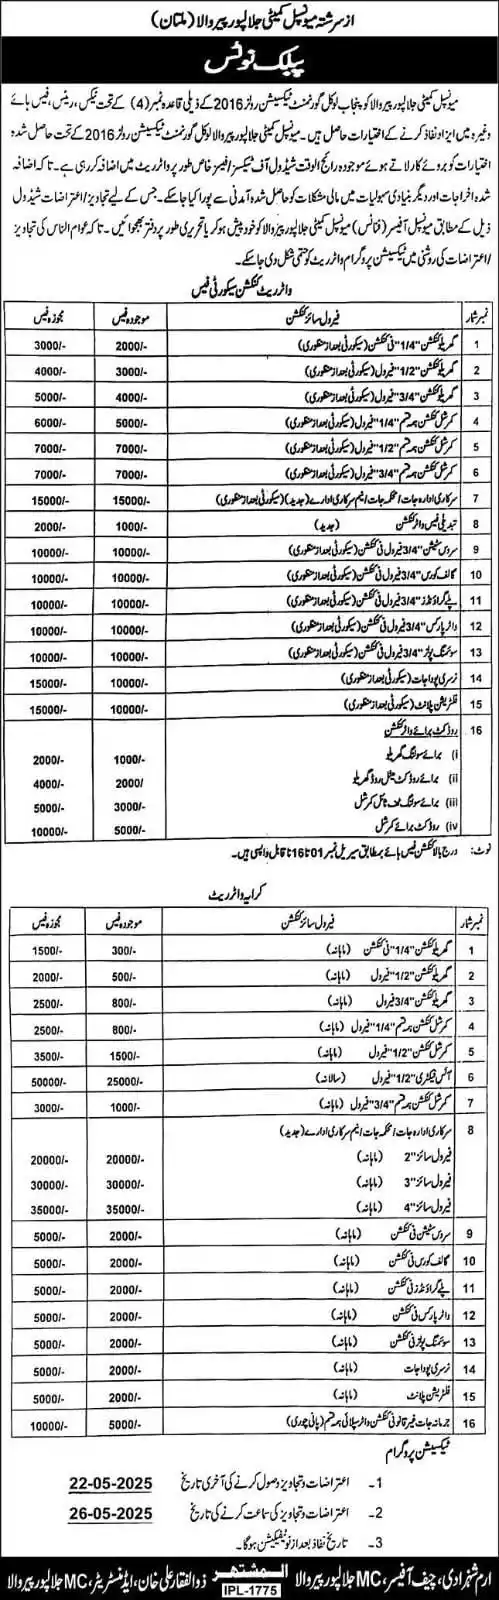 از سرشتہ میونسپل کمیٹی جلالپور پیروالا (ملتان)
پبلک نوٹس
میونسپل کمیٹی جلالپور پیروالا کو پنجاب لوکل گورنمنٹ ٹیکسیشن رولز 2016 کے ذیلی قاعدہ نمبر (4) کے تحت ٹیکس، ریٹس، فیس ہائے
وغیرہ میں ایزاد و نفاذ کرنے کے اختیارات حاصل ہیں۔ میونسپل کمیٹی جلالپور پیروالا لوکل گورنمنٹ ٹیکسیشن رولز 2016 کے تحت حاصل شدہ
اختیارات کو بروئے کار لاتے ہوئے موجودہ رائج الوقت شیڈول آف ٹیکسز/فیسز خاص طور پر واٹر ریٹ میں اضافہ کر رہی ہے۔ تاکہ اضافہ
شدہ اخراجات اور دیگر بنیادی سہولیات میں مالی مشکلات کو حاصل شدہ آمدنی سے پورا کیا جا سکے۔ جس کے لیے تجاویز/اعتراضات شیڈول
ذیل کے مطابق میونسپل آفیسر (فنانس) میونسپل کمیٹی جلالپور پیروالا کو خود پیش ہو کر یا تحریری طور پر دفتر بھجوائیں۔ تاکہ عوام الناس کی تجاویز
/اعتراضات کی روشنی میں ٹیکسیشن پروگرام واٹر ریٹ کو حتمی شکل دی جا سکے۔
واٹر ریٹ کنکشن سکیورٹی فیس
نمبر شمار فیرول سائز کنکشن موجودہ فیس مجوزہ فیس
1 گھریلو کنکشن "1/4 فی کنکشن (سکیورٹی بعد از منظوری) 2000/- 3000/-
2 گھریلو کنکشن "1/2 فیرول (سکیورٹی بعد از منظوری) 3000/- 4000/-
3 گھریلو کنکشن "3/4 فیرول (سکیورٹی بعد از منظوری) 4000/- 5000/-
4 کمرشل کنکشن ہمہ قسم "1/4 فیرول (سکیورٹی بعد از منظوری) 5000/- 6000/-
5 کمرشل کنکشن ہمہ قسم "1/2 فیرول (سکیورٹی بعد از منظوری) 7000/- 7000/-
6 کمرشل کنکشن ہمہ قسم "3/4 فیرول (سکیورٹی بعد از منظوری) 7000/- 7000/-
7 سرکاری ادارہ جات/محکمہ جات/نیم سرکاری ادارے (جدید) (سکیورٹی بعد از منظوری) 15000/- 15000/-
8 تبدیلی فیس واٹر کنکشن (جدید) 1000/- 2000/-
9 سروس سٹیشن "3/4 فیرول فی کنکشن (سکیورٹی بعد از منظوری) 10000/- 10000/-
10 گالف کورس "3/4 فیرول فی کنکشن (سکیورٹی بعد از منظوری) 10000/- 10000/-
11 پلے گراؤنڈز "3/4 فیرول فی کنکشن (سکیورٹی بعد از منظوری) 10000/- 10000/-
12 واٹر پارکس "3/4 فیرول فی کنکشن (سکیورٹی بعد از منظوری) 10000/- 10000/-
13 سوئمنگ پولز "3/4 فیرول فی کنکشن (سکیورٹی بعد از منظوری) 10000/- 10000/-
14 نرسری پودا جات (سکیورٹی بعد از منظوری) 10000/- 15000/-
15 فلٹریشن پلانٹ (سکیورٹی بعد از منظوری) 10000/- 15000/-
16 روڈ کٹ برائے واٹر کنکشن
i) برائے سولنگ گھریلو 1000/- 2000/-
ii) برائے روڈ کٹ میٹل روڈ گھریلو 2000/ 4000/-
iii) برائے سولنگ ٹف ٹائل کمرشل 3000/- 5000/-
iv) روڈ کٹ برائے کمرشل 5000/- 10000/-
نوٹ: درج بالا کنکشن فیس ہائے بمطابق سیریل نمبر 01 تا 16 ناقابل واپسی ہیں۔
کرایہ واٹر ریٹ
نمبر شمار فیرول سائز کنکشن موجودہ فیس مجوزہ فیس
1 گھریلو کنکشن "1/4 فی کنکشن (ماہانہ) 300/- 1500/-
2 گھریلو کنکشن "1/2 فیرول (ماہانہ) 500/- 2000/-
3 گھریلو کنکشن "3/4 فیرول (ماہانہ) 800/- 2500/-
4 کمرشل کنکشن ہمہ قسم "1/4 فیرول (ماہانہ) 800/- 2500/-
5 کمرشل کنکشن "1/2 فیرول (ماہانہ) 1500/- 3500/-
6 آئس فیکٹری "1/2 فیرول (سالانہ) 25000/- 50000/-
7 کمرشل کنکشن ہمہ قسم "3/4 فیرول (ماہانہ) 1000/- 3000/-
8 سرکاری ادارہ جات/محکمہ جات/نیم سرکاری ادارے (جدید)
فیرول سائز "2 (ماہانہ) 20000/- 20000/-
فیرول سائز "3 (ماہانہ) 30000/- 30000/-
فیرول سائز "4 (ماہانہ) 35000/- 35000/-
9 سروس سٹیشن فی کنکشن (ماہانہ) 2000/- 5000/-
10 گالف کورس فی کنکشن (ماہانہ) 2000/- 5000/-
11 پلے گراؤنڈز فی کنکشن (ماہانہ) 2000/- 5000/-
12 واٹر پارکس فی کنکشن (ماہانہ) 2000/- 5000/-
13 سوئمنگ پولز فی کنکشن (ماہانہ) 2000/- 5000/-
14 نرسری پودا جات (ماہانہ) 2000/- 5000/-
15 فلٹریشن پلانٹ (ماہانہ) 2000/- 5000/-
16 جرمانہ جات غیر قانونی کنکشن واٹر سپلائی ہمہ قسم (پانی چوری) 5000/- 10000/-
ٹیکسیشن پروگرام
1- اعتراضات و تجاویز وصول کرنے کی آخری تاریخ 22-05-2025
2- اعتراضات و تجاویز کی سماعت کرنے کی تاریخ 26-05-2025
3- تاریخ نفاذ بعد از نوٹیفکیشن ہوگا۔
ارم شہزادی، چیف آفیسر، MC جلالپور پیروالا المشتہر ذوالفقار علی خان، ایڈمنسٹریٹر، MC جلالپور پیروالا
IPL-1775